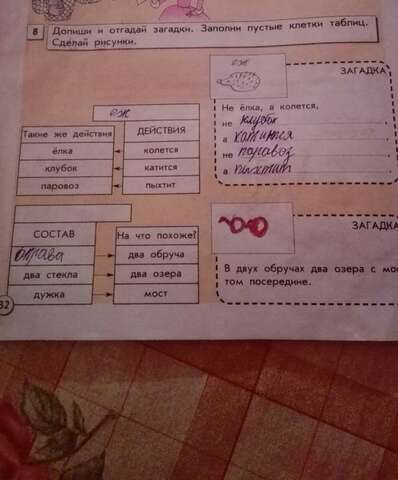 8 Допиши и отгадай загадки. Заполни пустые клетки таблиц.
Сделай рисунки.
еж
ЗАГАДКА
Не ёлка, а колется,
не клубок,
а катится,
не паровоз,
а пыхтит.
еж
Такие же действия ДЕЙСТВИЯ
ёлка колется
клубок катится
паровоз пыхтит
СОСТАВ На что похоже?
оправа два обруча
два стекла два озера
дужка мост
ЗАГАДКА
В двух обручах два озера с мос
том посередине.
32